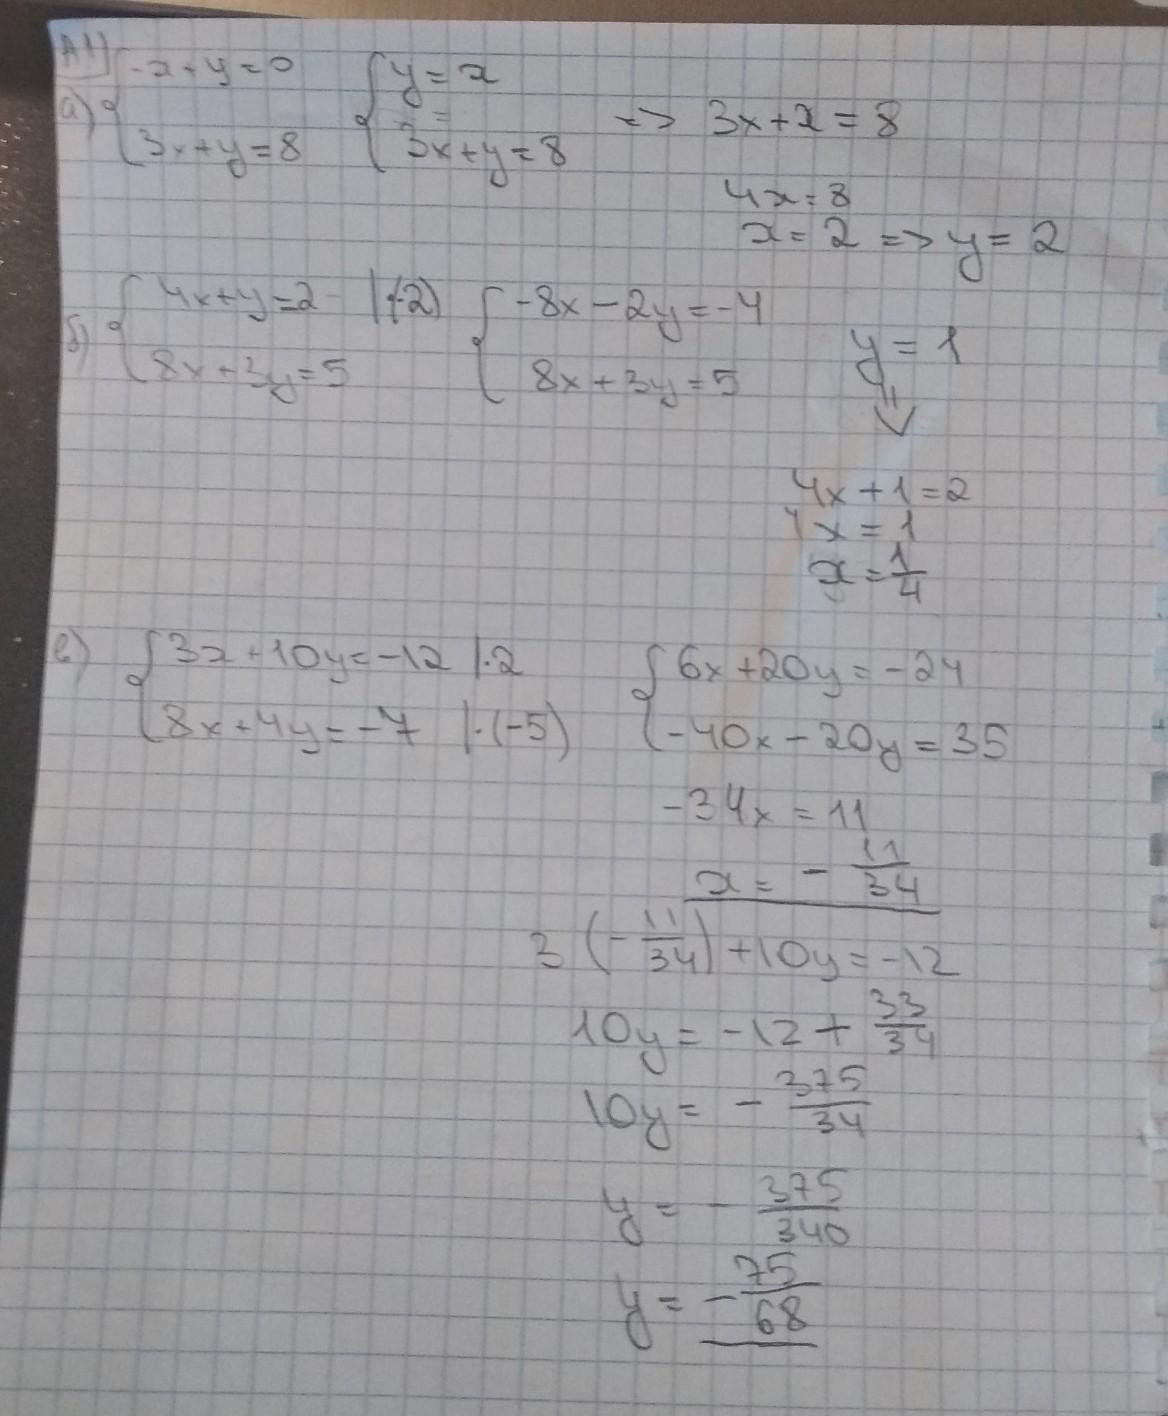 А1)
а) { -x+y=0 { y=x
3x+y=8 3x+y=8 => 3x+x=8
4x=8
x=2 => y=2
б) { 4x+y=2 |·(-2) { -8x-2y=-4
8x+3y=5 8x+3y=5 y=1
⇓
4x+1=2
4x=1
x=1/4
в) { 3x+10y=-12 |·2 { 6x+20y=-24
8x+4y=-7 |·(-5) -40x-20y=35
-34x=11
x=-11/34
3(-11/34)+10y=-12
10y=-12+33/34
10y=-375/34
y=-375/340
y=-75/68